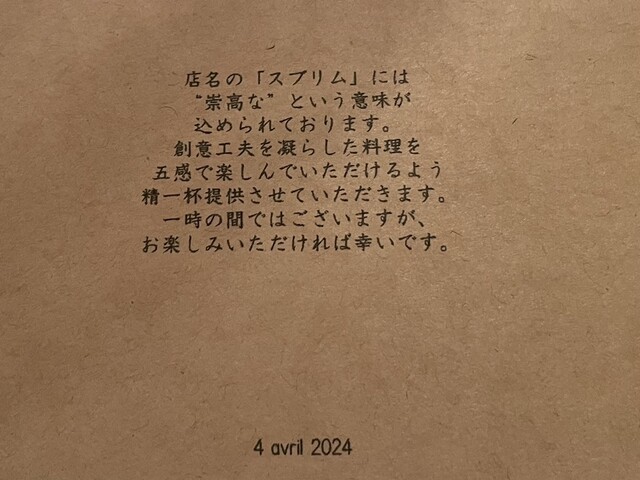 店名の「スブリム」には
“崇高な”という意味が
込められております。
創意工夫を凝らした料理を
五感で楽しんでいただけるよう
精一杯提供させていただきます。
一時の間ではございますが、
お楽しみいただければ幸いです。
4 avril 2024